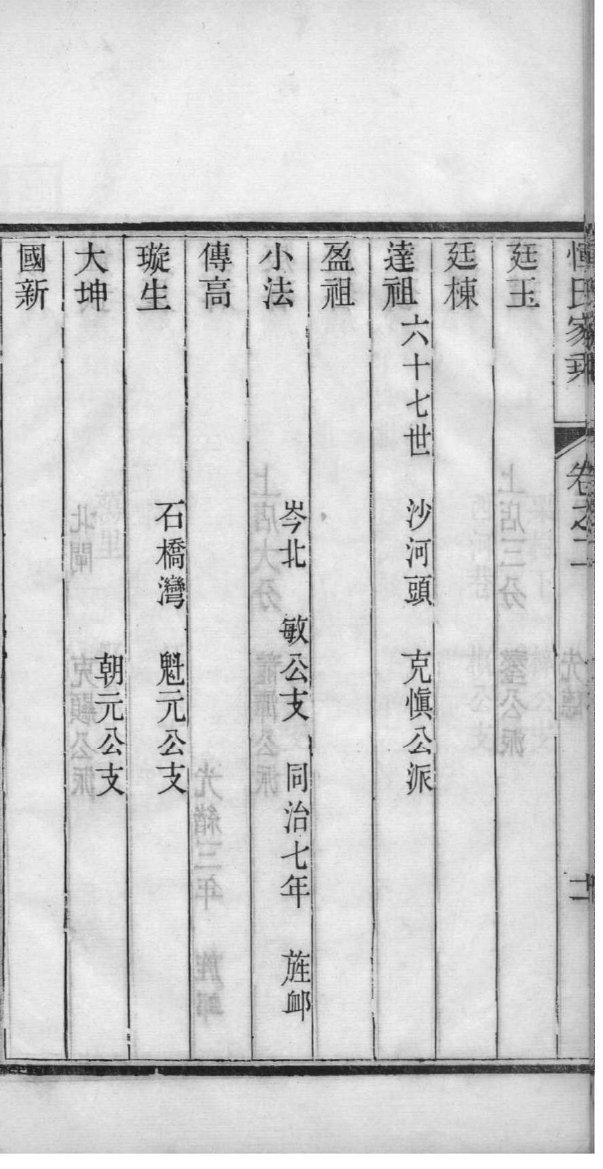 惲氏家乘 卷之二
廷玉
廷棟
達祖 六十七世 沙河頭 克慎公派
盈祖
小法 岑北 敏公支 同治七年 旌卹
傳高
璇生 石橋灣 魁元公支
大坤 朝元公支
國新